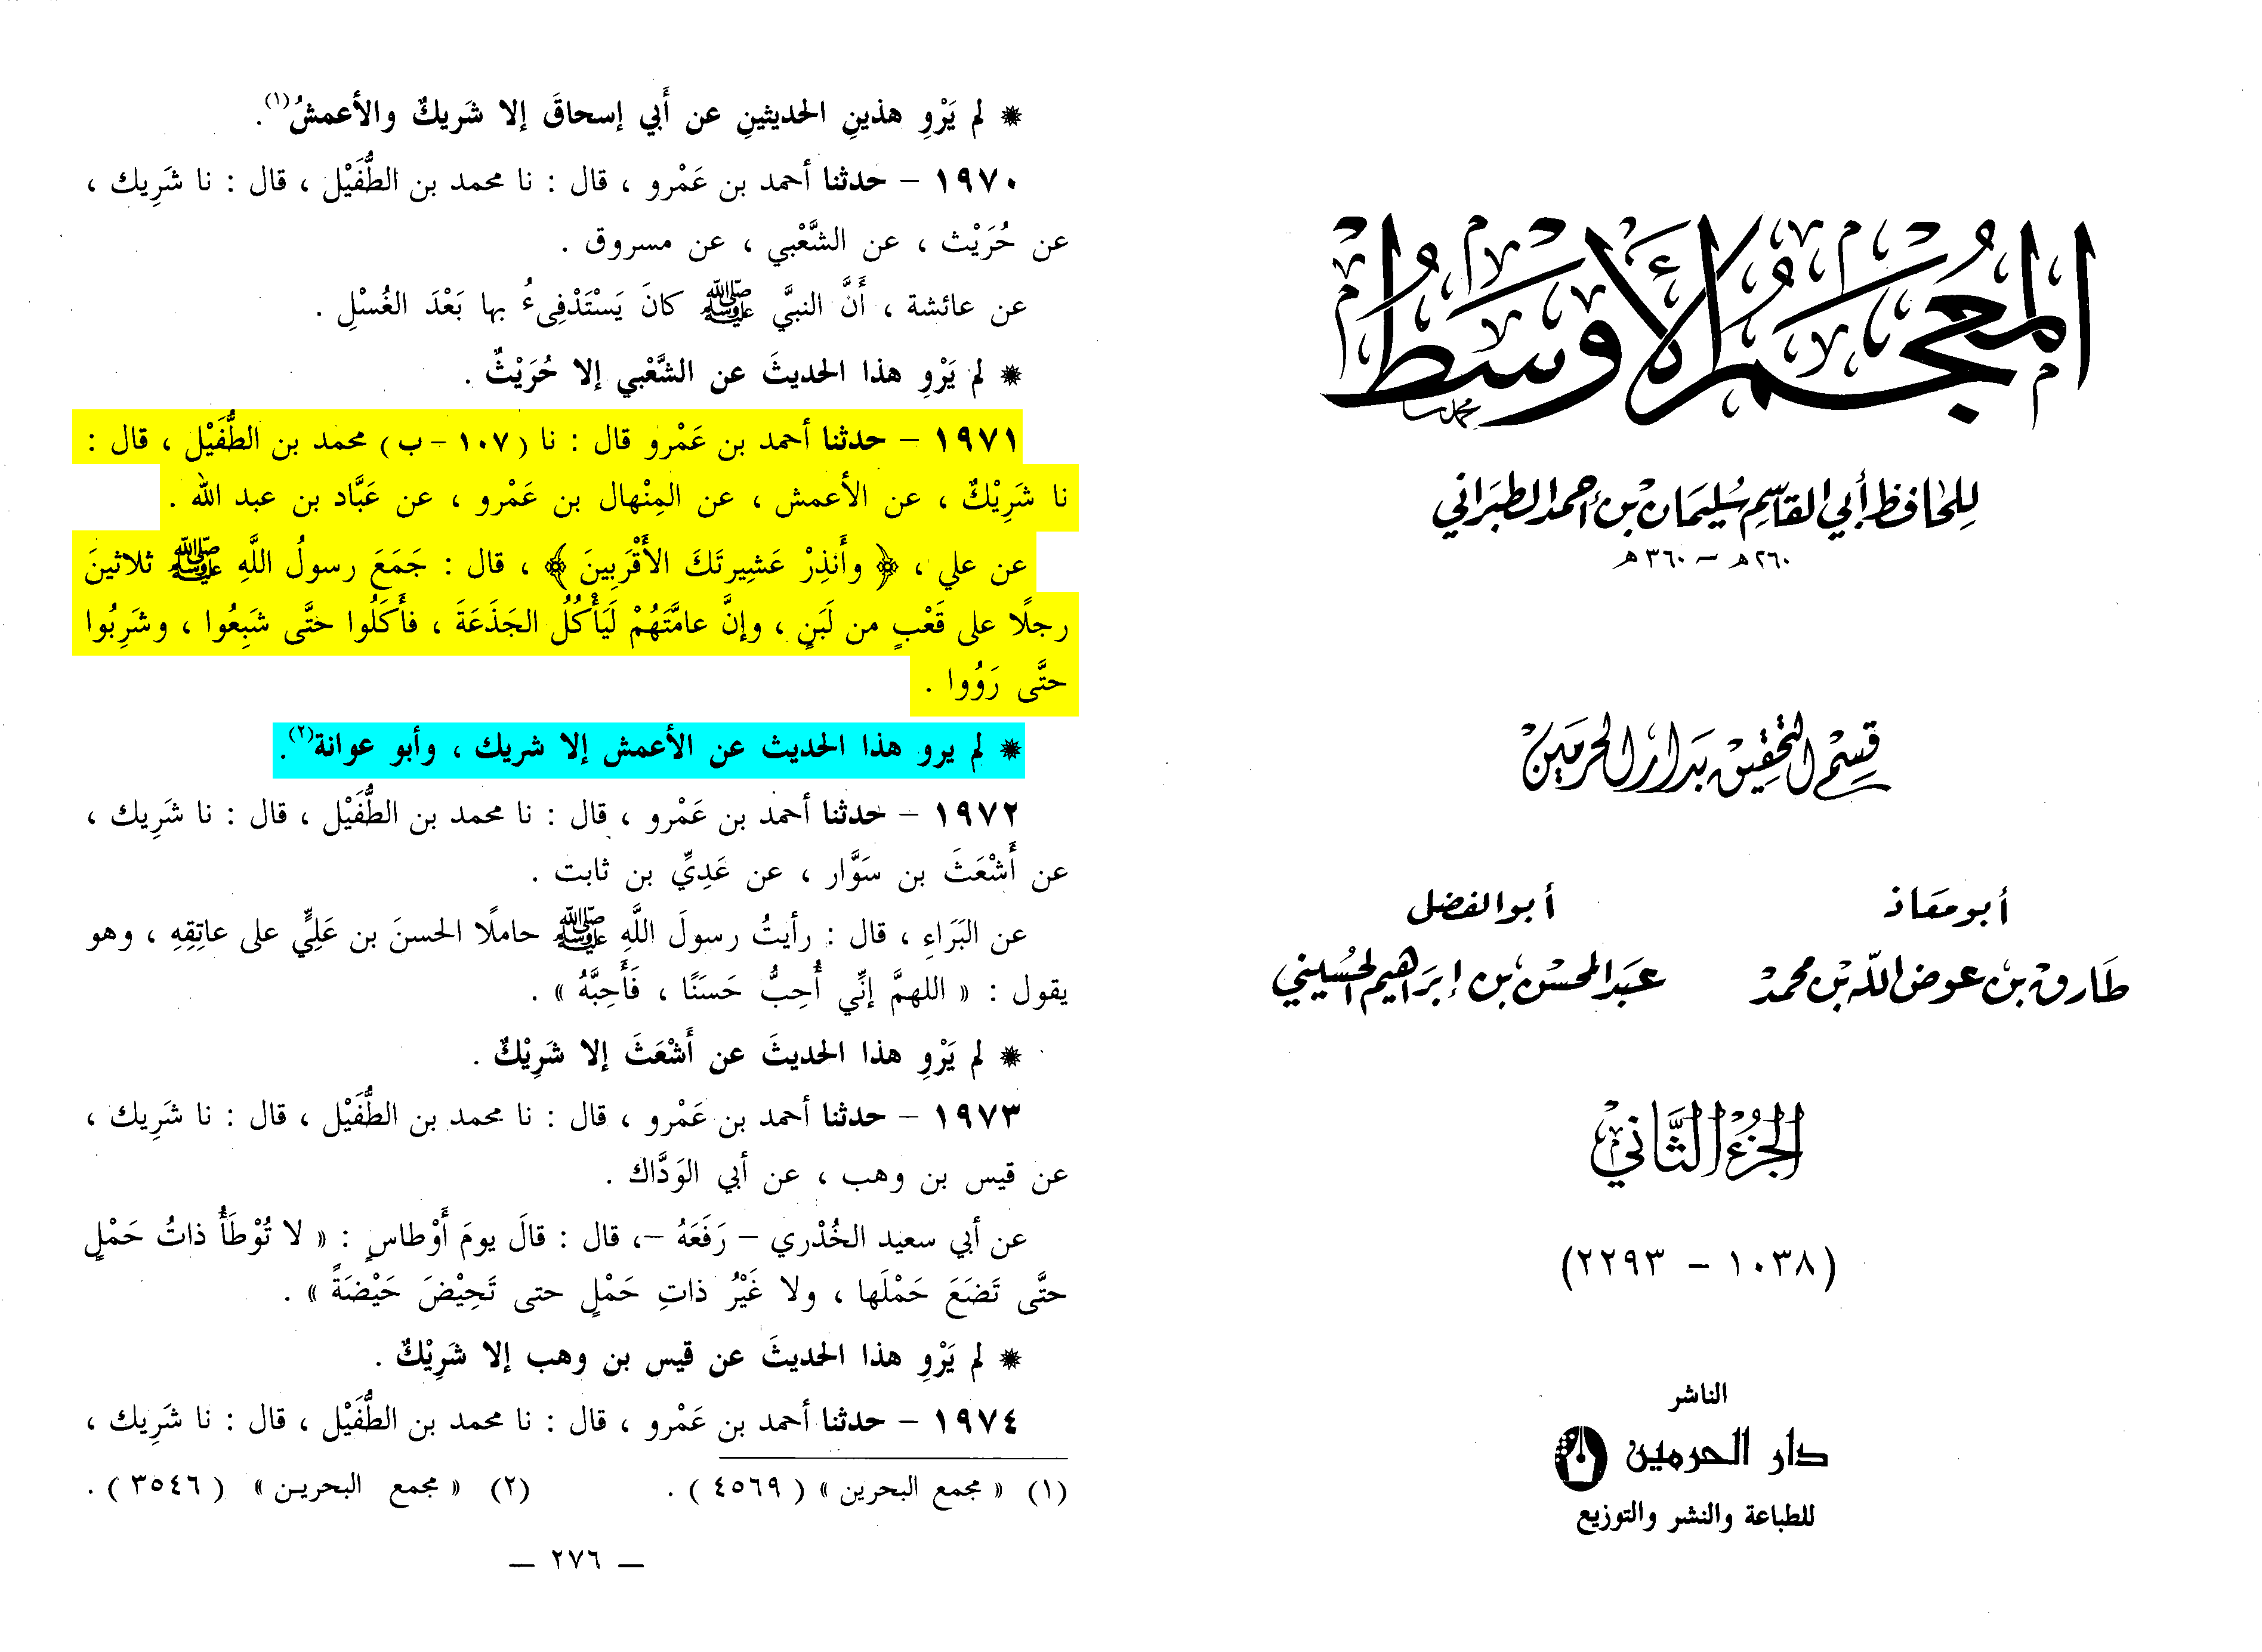 المعجم الأوسط
للحافظ أبي القاسم سليمان بن أحمد الطبراني
٢٦٠هـ – ٣٦٠هـ
قسم التحقيق بدار الحرمين
أبو معاذ
طارق بن عوض الله بن محمد
أبو الفضل
عبد المحسن بن إبراهيم الحسيني
الجزء الثاني
(١٠٣٨ – ٢٢٩٣)
الناشر
دار الحرمين
للطباعة والنشر والتوزيع
* لم يَرْوِ هذينِ الحديثينِ عن أَبي إسحاقَ إلا شَريكٌ والأعمشُ(١).
١٩٧٠ – حدثنا أحمد بن عَمْرو ، قال : نا محمد بن الطُّفَيْل ، قال : نا شَرِيك ،
عن حُرَيْث ، عن الشَّعْبي ، عن مسروق .
عن عائشة ، أَنَّ النبيَّ ﷺ كانَ يَسْتَدْفِىءُ بها بَعْدَ الغُسْلِ .
* لم يَرْوِ هذا الحديثَ عن الشَّعْبي إلا حُرَيْثٌ .
١٩٧١ – حدثنا أحمد بن عَمْرو قال : نا (١٠٧ – ب) محمد بن الطُّفَيْل ، قال :
نا شَرِيْكٌ ، عن الأعمش ، عن المِنْهال بن عَمْرو ، عن عَبَّاد بن عبد الله .
عن علي ، ﴿ وأَنذِرْ عَشِيرتَكَ الأَقْرَبِينَ ﴾ ، قال : جَمَعَ رسولُ اللَّهِ ﷺ ثلاثينَ
رجلًا على قَعْبٍ من لَبَنٍ ، وإنَّ عامَّتَهُمْ لَيَأْكُلُ الجَذَعَةَ ، فأَكَلُوا حتَّى شَبِعُوا ، وشَرِبُوا
حتَّى رَوُوا .
* لم يرو هذا الحديث عن الأعمش إلا شريك ، وأبو عوانة(٢).
١٩٧٢ – حدثنا أحمد بن عَمْرو ، قال : نا محمد بن الطُّفَيْل ، قال : نا شَرِيك ،
عن أَشْعَثَ بن سَوَّار ، عن عَدِيِّ بن ثابت .
عن البَرَاءِ ، قال : رأيتُ رسولَ اللَّهِ ﷺ حاملًا الحسنَ بن عَلِيٍّ على عاتِقِهِ ، وهو
يقول : « اللهمَّ إنِّي أُحِبُّ حَسَنًا ، فَأَحِبَّهُ » .
* لم يَرْوِ هذا الحديثَ عن أَشْعَثَ إلا شَرِيْكٌ .
١٩٧٣ – حدثنا أحمد بن عَمْرو ، قال : نا محمد بن الطُّفَيْل ، قال : نا شَرِيك ،
عن قيس بن وهب ، عن أبي الوَدَّاك .
عن أبي سعيد الخُدْري – رَفَعَهُ –، قال : قالَ يومَ أَوْطاسٍ : « لا تُوْطَأُ ذاتُ حَمْلٍ
حتَّى تَضَعَ حَمْلَها ، ولا غَيْرُ ذاتِ حَمْلٍ حتى تَحِيْضَ حَيْضَةً » .
* لم يَرْوِ هذا الحديثَ عن قيس بن وهب إلا شَرِيْكٌ .
١٩٧٤ – حدثنا أحمد بن عَمْرو ، قال : نا محمد بن الطُّفَيْل ، قال : نا شَرِيك ،
(١) « مجمع البحرين » ( ٤٥٦٩ ) .
(٢) « مجمع البحرين » ( ٣٥٤٦ ) .
– ٢٧٦ –